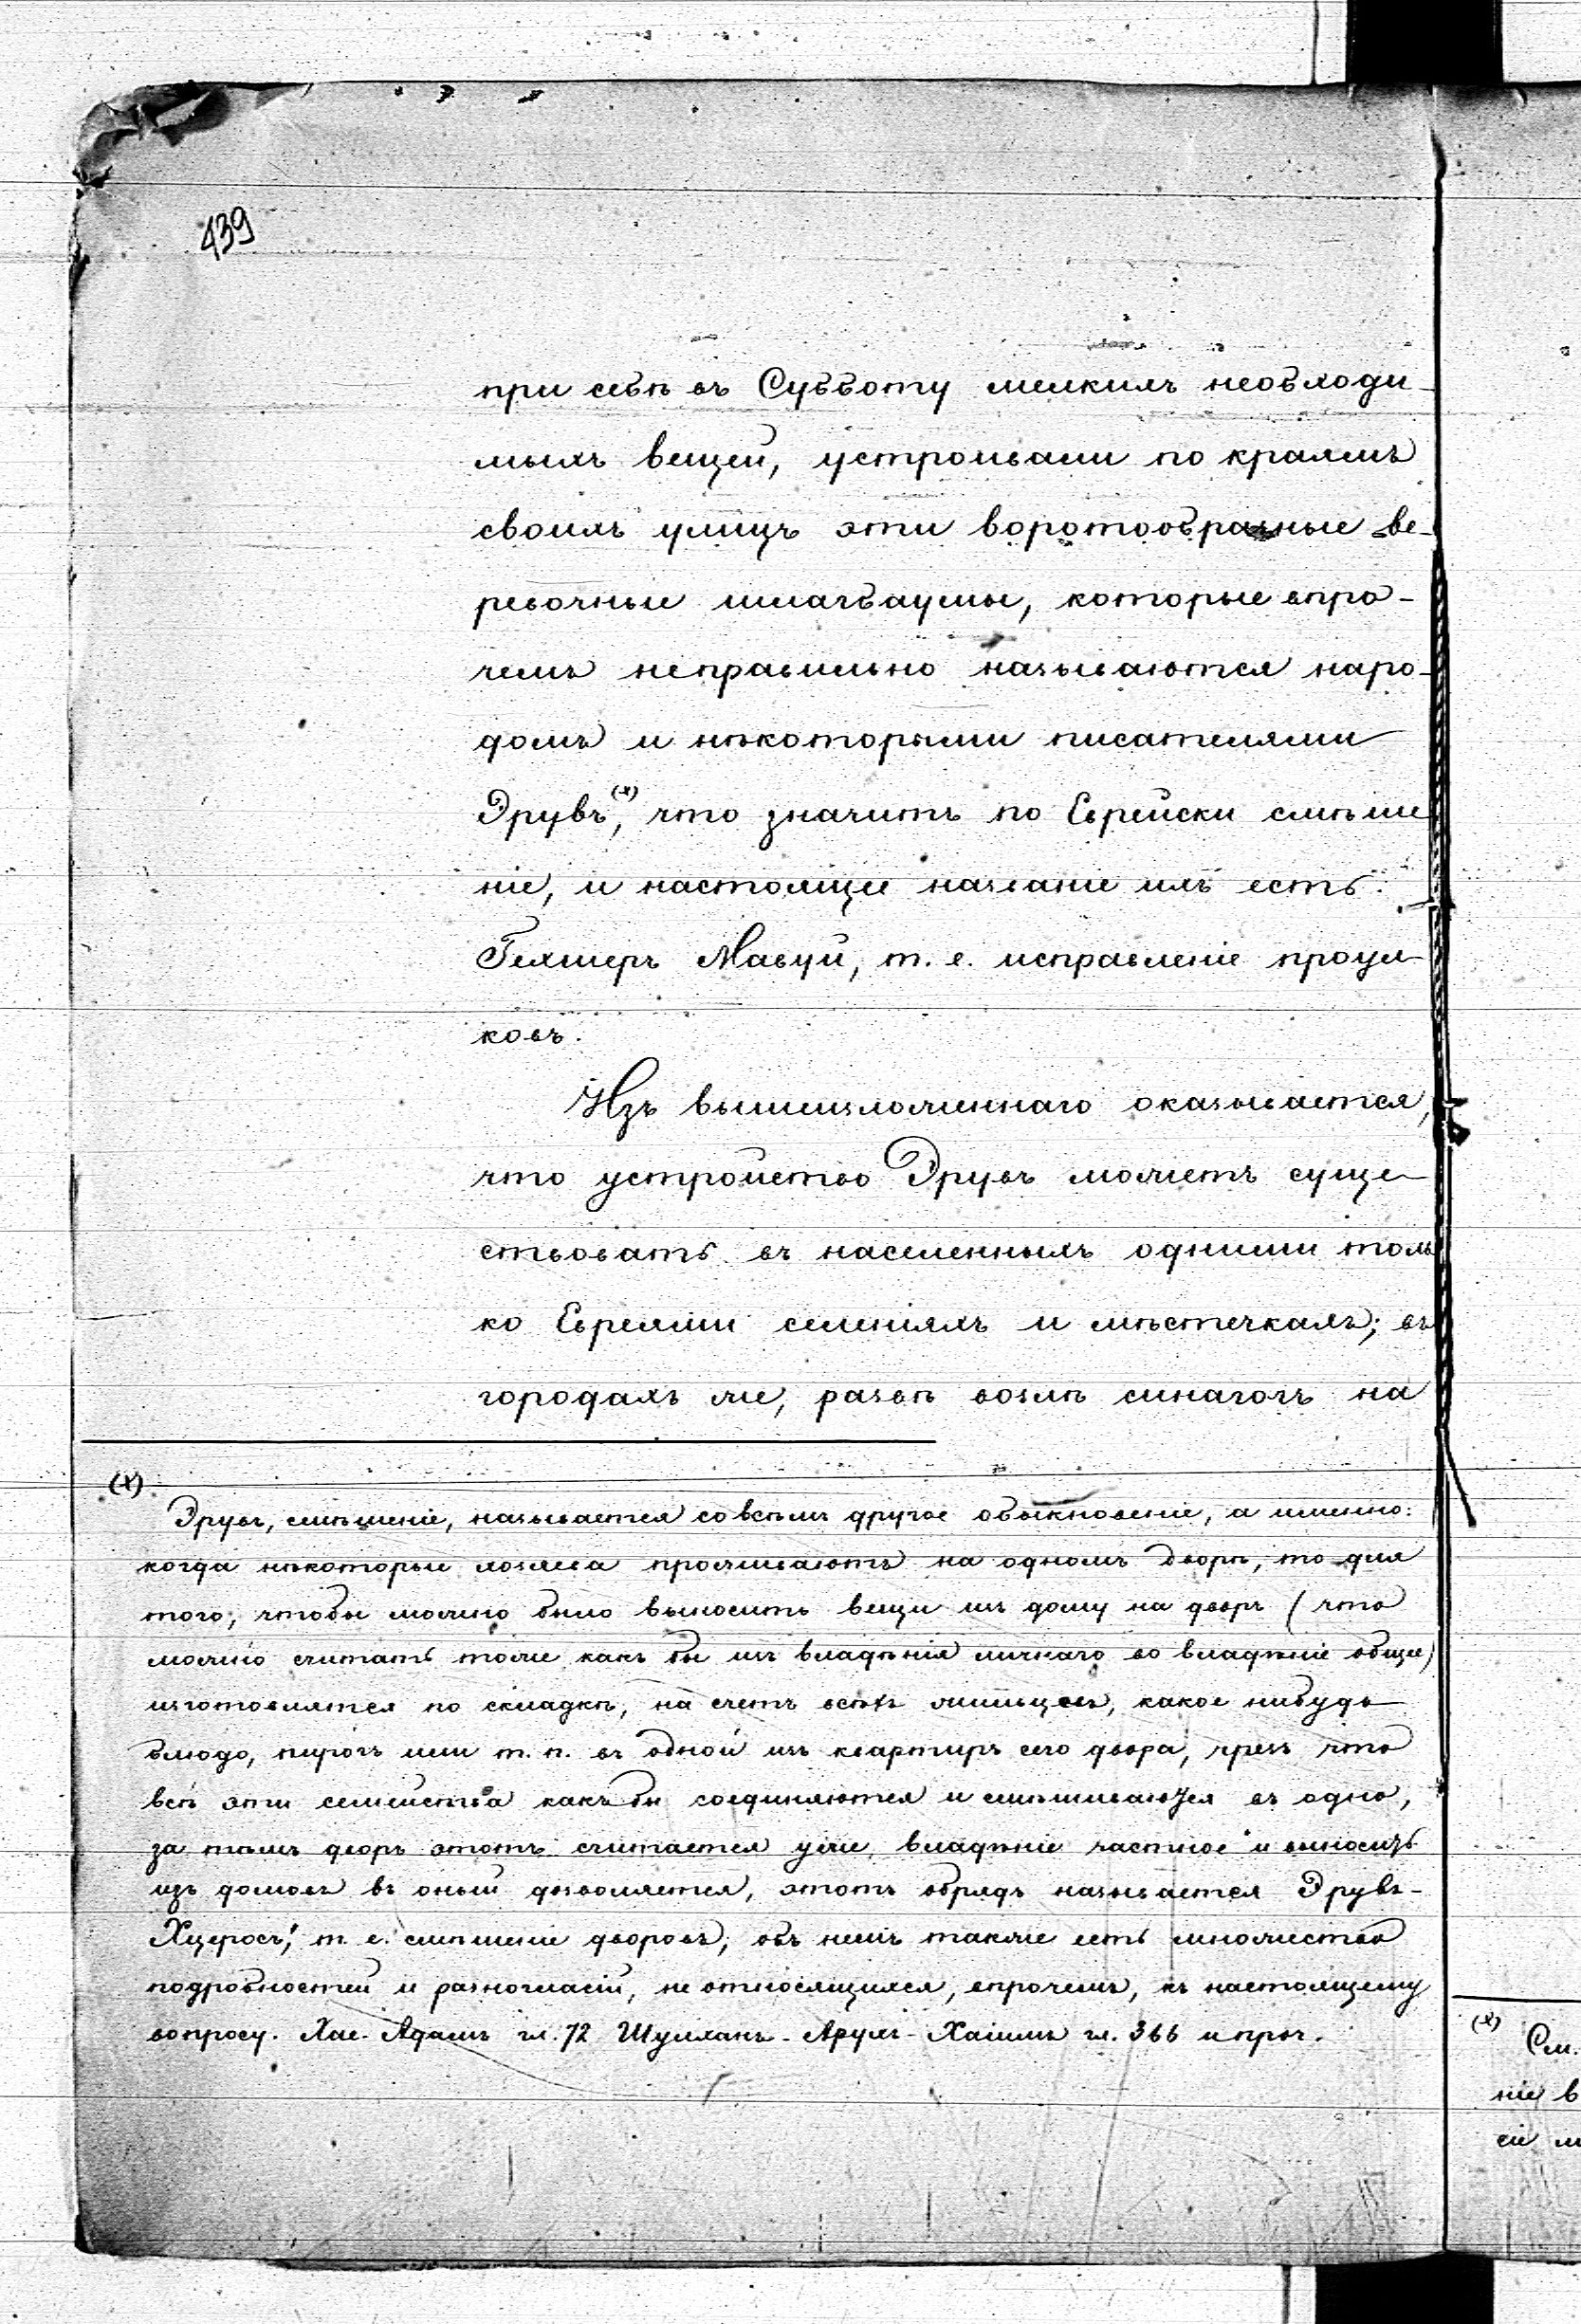 439
при себѣ въ Субботу мелкихъ необходи-
мыхъ вещей, устроивали по краямъ
своихъ улицъ эти воротообразные ве-
ревочные шлагбаумы, которые впро-
чемъ неправильно называются наро-
домъ и нѣкоторыми писателями
Эрувъ,(х) что значитъ по Еврейски смѣше
ніе, и настоящее названіе ихъ есть:
Гехшеръ Мавуй, т. е. исправленіе проул-
ковъ.
Изъ вышеизложеннаго оказывается,
что устройство Эрувъ можетъ суще-
ствовать въ населенныхъ одними толь
ко Евреями селеніяхъ и мѣстечкахъ; въ
городахъ же, развѣ возлѣ синагогъ на
(х)
Эрувъ, смѣшеніе, называется совсѣмъ другое обыкновеніе, а именно:
когда нѣкоторые хозяева проживаютъ на одномъ дворѣ, то для
того, чтобы можно было выносить вещи изъ дому на дворъ (что
можно считать тоже какъ бы изъ владѣнія личнаго во владѣніе общее)
изготовляется по складкѣ, на счетъ всѣхъ жильцевъ, какое нибудь
блюдо, пирогъ или т. п. въ одной изъ квартиръ сего двора, чрезъ что
всѣ эти семейства какъ бы соединяются и смѣшиваются въ одно,
за тѣмъ дворъ этотъ считается уже владѣніе частное и выносить
изъ домовъ въ оный дозволяется, этотъ обрядъ называется Эрувъ-
Хцеросъ, т. е. смѣшеніе дворовъ; объ немъ также есть множество
подробностей и разногласій, не относящихся, впрочемъ, къ настоящему
вопросу. Хае-Адамъ гл. 72 Шулханъ-Арухъ-Хаіимъ гл. 366 и проч.
(х) См.
ніе в
сіе